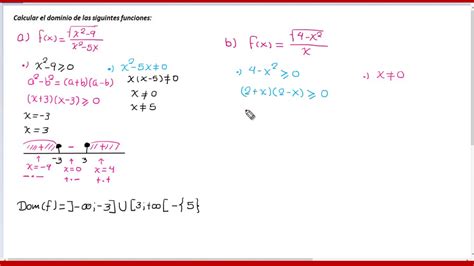 Calcular el dominio de las siguintes funciones:
a) f(x) = √(x²-9) / x²-5x
•) x²-9 ≥ 0
•) x²-5x ≠ 0
a²-b² = (a+b)(a-b)
x(x-5) ≠ 0
(x+3)(x-3) ≥ 0
x ≠ 0
x = -3
x ≠ 5
x = 3
+ + - + +
-3 3
x=-4 x=0 x=4
- - + - + +
Dom(f) = ]-∞;-3] U [3;+∞[ - {5}
b) f(x) = √(4-x²) / x
•) 4-x² ≥ 0
•) x ≠ 0
(2+x)(2-x) ≥ 0